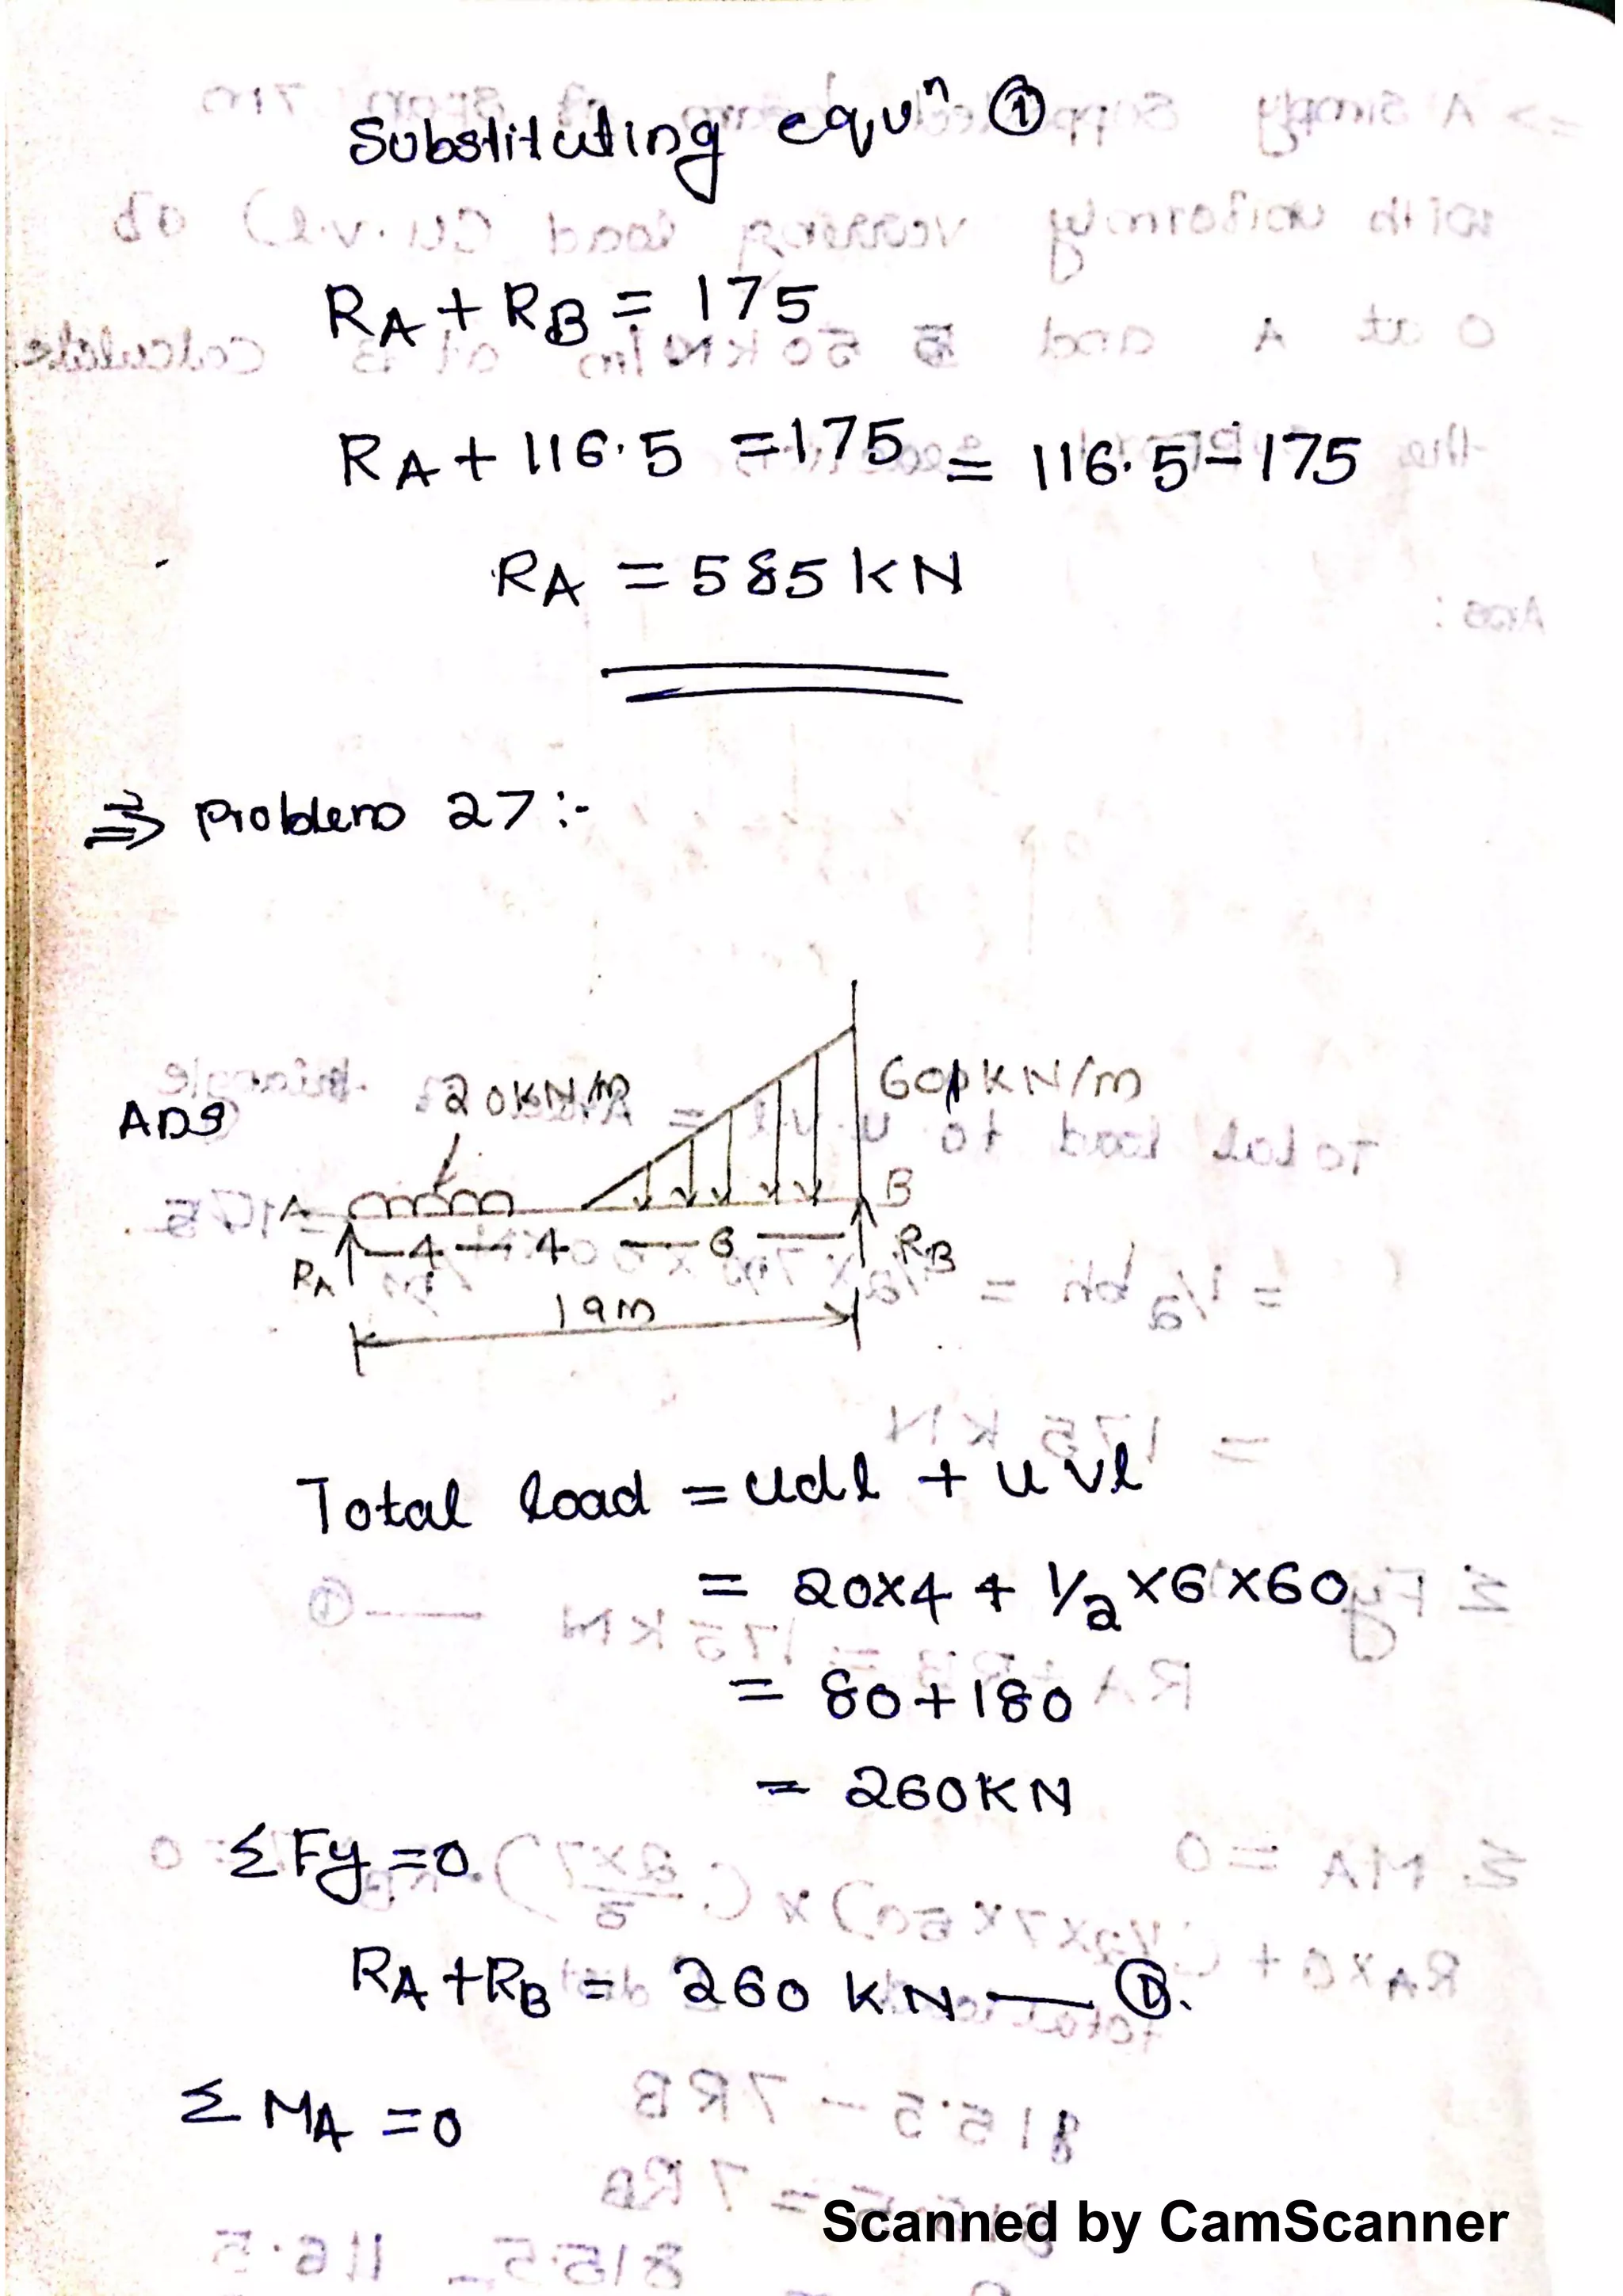 Substituting equⁿ ①
RA + RB = 175
RA + 116.5 = 175 = 116.5 - 175
RA = 585 kN
⇒ Problem 27 :-
20KN/m
60 KN/m
Ans
A
B
4 4 6
RA
RB
19m
Total load = udl + uvl
= 20x4 + 1/2 x6 x60
= 80+180
= 260KN
ΣFy = 0
RA +RB = 260 KN — ①.
Σ MA = 0
Scanned by CamScanner